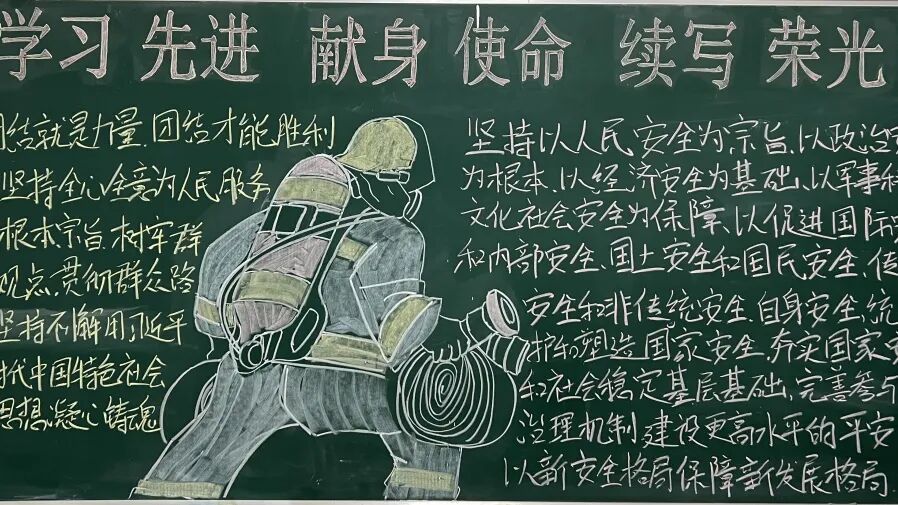 学习 先进 献身 使命 续写 荣光
团结就是力量,团结才能胜利
坚持全心全意为人民服务
根本宗旨,树牢群
观点,贯彻群众路
坚持不懈用习近平
时代中国特色社会
思想凝心铸魂
坚持以人民安全为宗旨、以政治安
为根本、以经济安全为基础、以军事科
文化社会安全为保障、以促进国际安
和内部安全、国土安全和国民安全、传
安全和非传统安全、自身安全、统
护和塑造国家安全,夯实国家安
和社会稳定基层基础,完善参与
治理机制,建设更高水平的平安
以新安全格局保障新发展格局